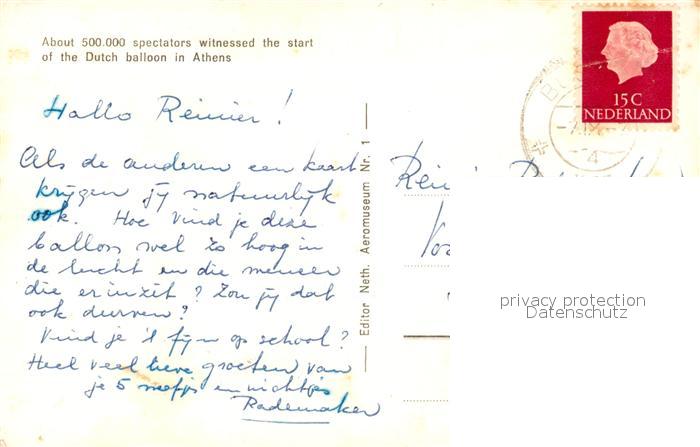 About 500.000 spectators witnessed the start
of the Dutch balloon in Athens
Hallo Reinier!
Als de anderen een kaart
krijgen jij natuurlijk
ook. Hoe vind je deze
ballon wel zo hoog in
de lucht en die meneer
die er in zit? Zou jij dat
ook durven?
Vind je 't fijn op school?
Heel veel lieve groeten van
je 5 neefjes en nichtjes
Rademaker
Editor Neth. Aeromuseum Nr. 1
15 C
NEDERLAND
privacy protection
Datenschutz